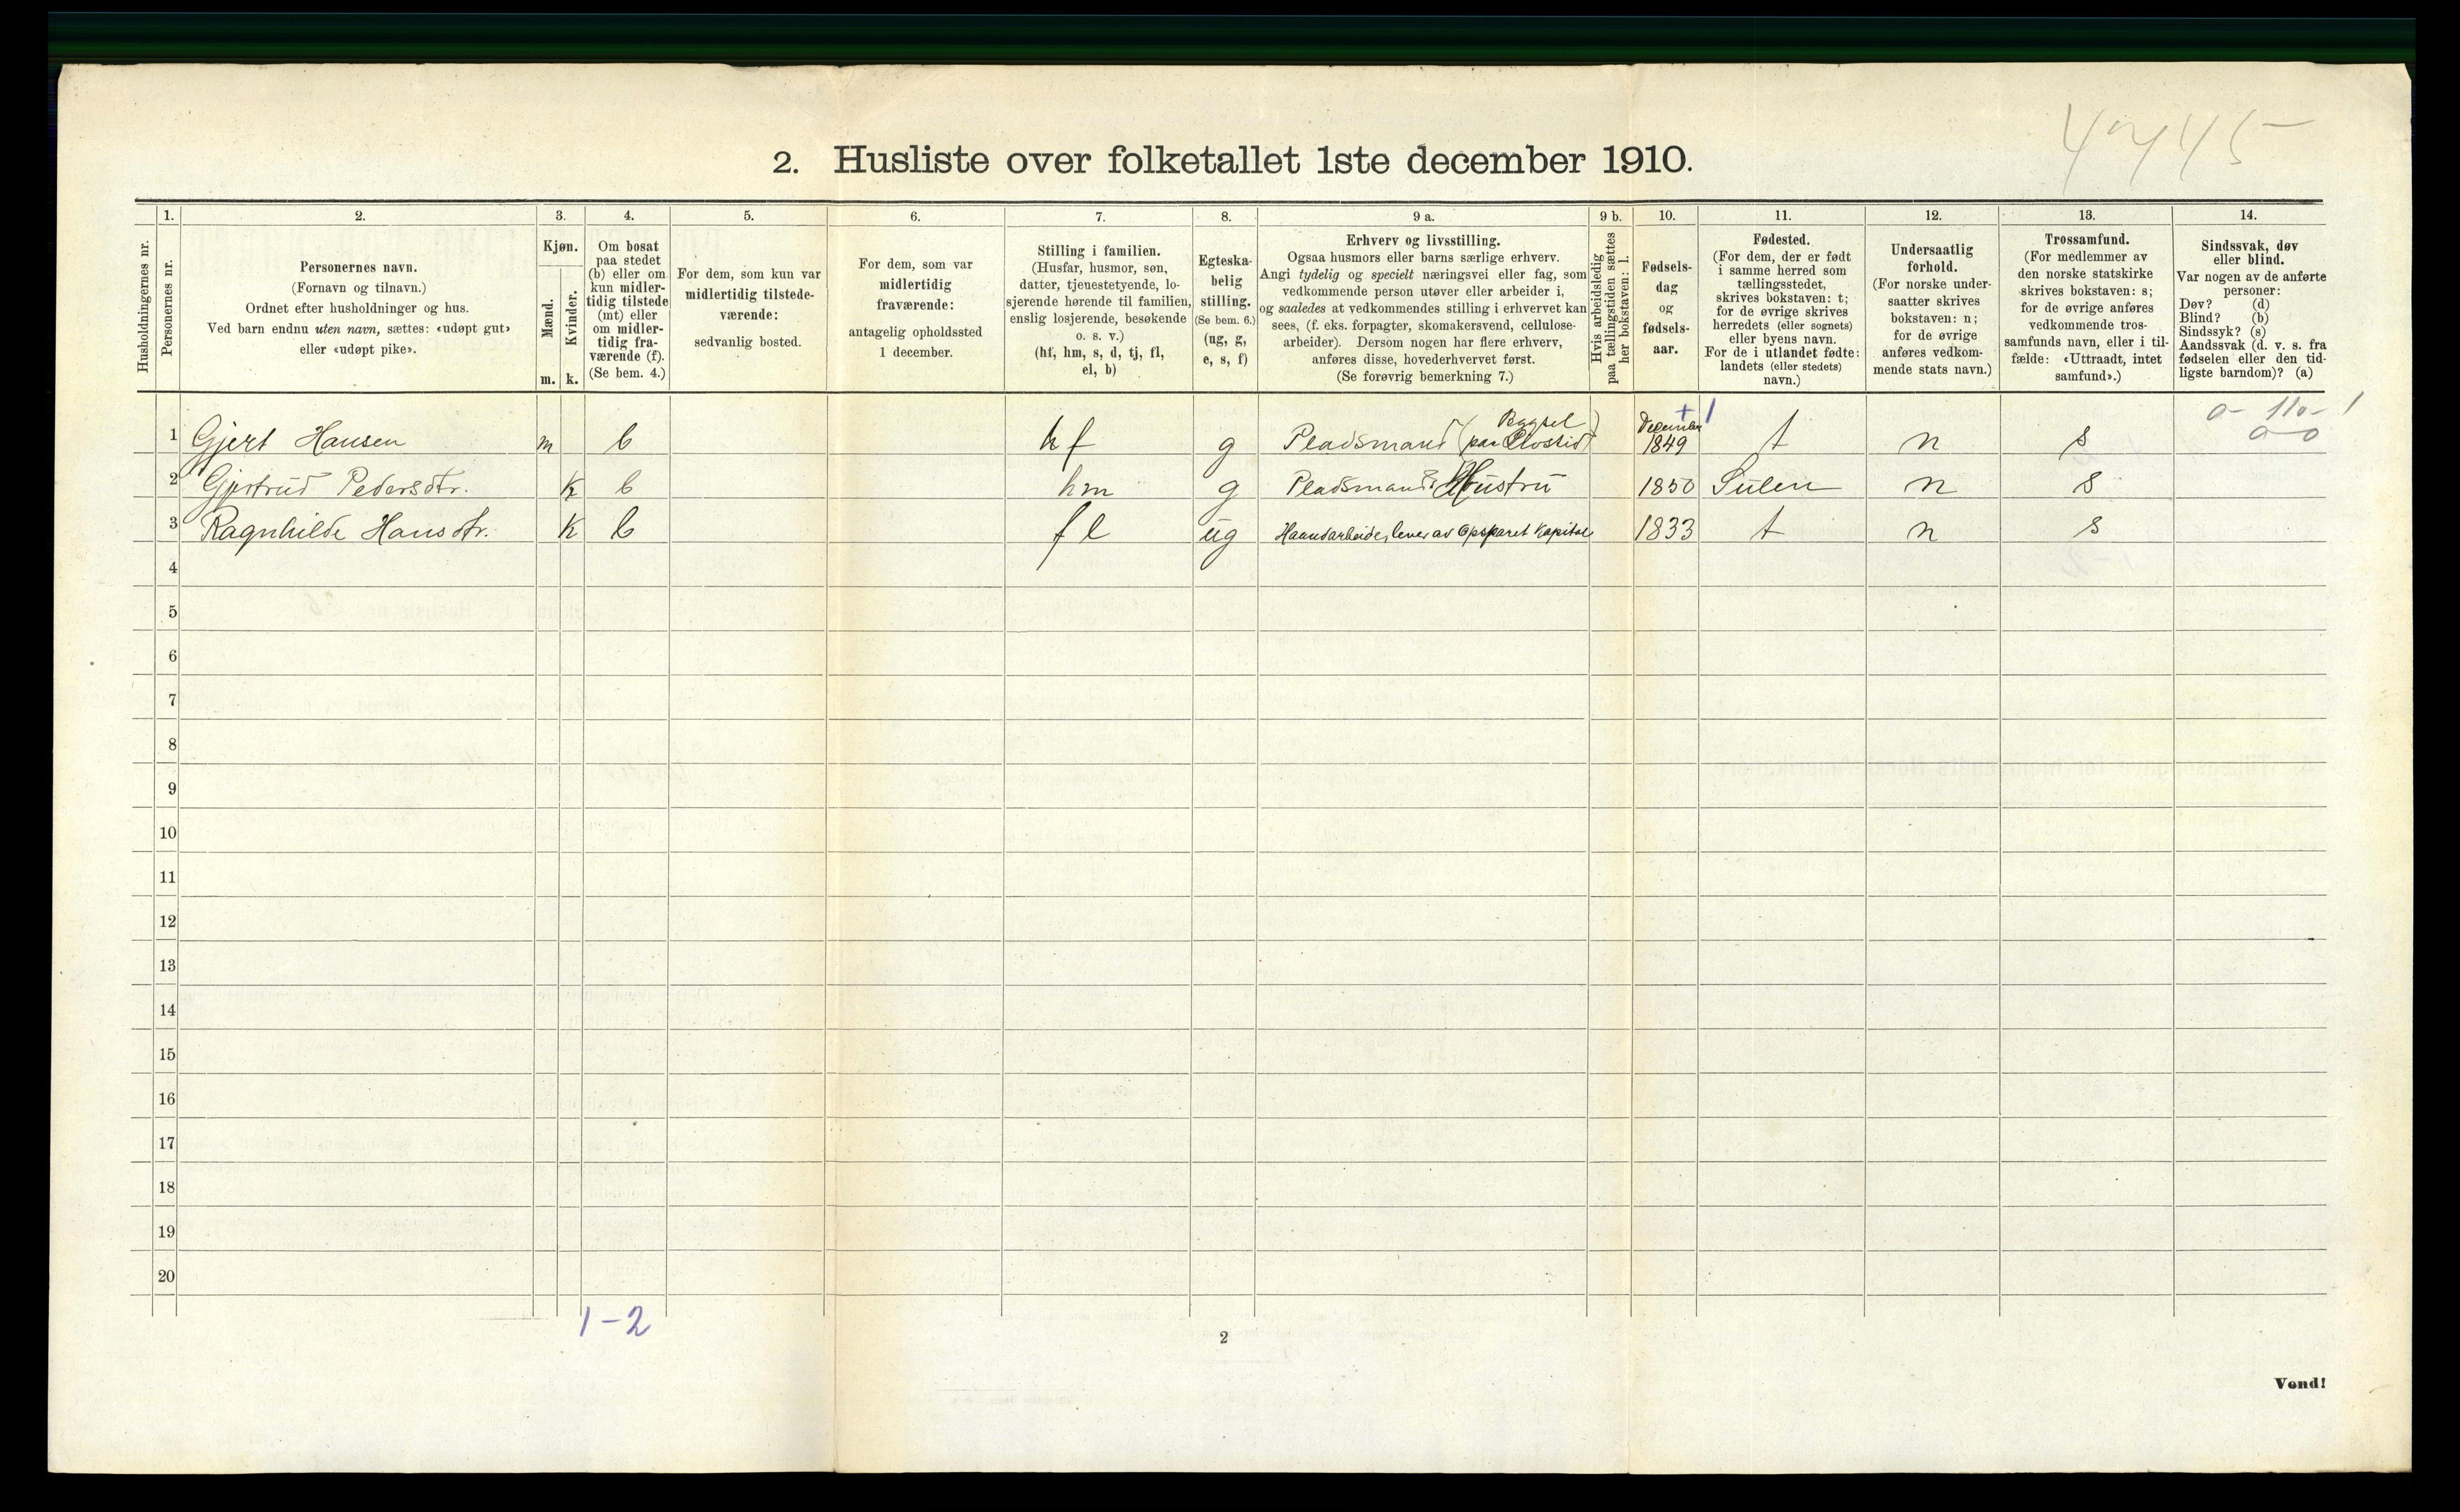 4745
2. Husliste over folketallet 1ste december 1910.
Husholdningernes nr.
1.
Personernes nr.
2.
Personernes navn.
(Fornavn og tilnavn.)
Ordnet efter husholdninger og hus.
Ved barn endnu uten navn, sættes: «udøpt gut»
eller «udøpt pike».
3.
Kjøn.
Mænd.
Kvinder.
m. k.
4.
Om bosat
paa stedet
(b) eller om
kun midler-
tidig tilstede
(mt) eller
om midler-
tidig fra-
værende (f).
(Se bem. 4.)
5.
For dem, som kun var
midlertidig tilstede-
værende:
sedvanlig bosted.
6.
For dem, som var
midlertidig
fraværende:
antagelig opholdssted
1 december.
7.
Stilling i familien.
(Husfar, husmor, søn,
datter, tjenestetyende, lo-
sjerende hørende til familien,
enslig losjerende, besøkende
o. s. v.)
(hf, hm, s, d, tj, fl,
el, b)
8.
Egteska-
belig
stilling.
(Se bem. 6.)
(ug, g,
e, s, f)
9 a.
Erhverv og livsstilling.
Ogsaa husmors eller barns særlige erhverv.
Angi tydelig og specielt næringsvei eller fag, som
vedkommende person utøver eller arbeider i,
og saaledes at vedkommendes stilling i erhvervet kan
sees, (f. eks. forpagter, skomakersvend, cellulose-
arbeider). Dersom nogen har flere erhverv,
anføres disse, hovederhvervet først.
(Se forøvrig bemerkning 7.)
9 b.
Hvis arbeidsledig
paa tællingstiden sættes
her bokstaven: l.
10.
Fødsels-
dag
og
fødsels-
aar.
11.
Fødested.
(For dem, der er født
i samme herred som
tællingsstedet,
skrives bokstaven: t;
for de øvrige skrives
herredets (eller sognets)
eller byens navn.
For de i utlandet fødte:
landets (eller stedets)
navn.)
12.
Undersaatlig
forhold.
(For norske under-
saatter skrives
bokstaven: n;
for de øvrige
anføres vedkom-
mende stats navn.)
13.
Trossamfund.
(For medlemmer av
den norske statskirke
skrives bokstaven: s;
for de øvrige anføres
vedkommende tros-
samfunds navn, eller i til-
fælde: «Uttraadt, intet
samfund».)
14.
Sindssvak, døv
eller blind.
Var nogen av de anførte
personer:
Døv? (d)
Blind? (b)
Sindssyk? (s)
Aandssvak (d. v. s. fra
fødselen eller den tid-
ligste barndom)? (a)
1 Gjert Hansen m b hf g Pladsmand (paa December 1849 t n s
2 Gjertrud Pedersdtr. k b hm g Pladsmands Hustru 1850 Sulen n s
3 Ragnhilde Hansdtr. k b fl ug Haandarbeide, lever av Opsparet Kapital 1833 t n s
4
5
6
7
8
9
10
11
12
13
14
15
16
17
18
19
20
1-2
2
Vend!